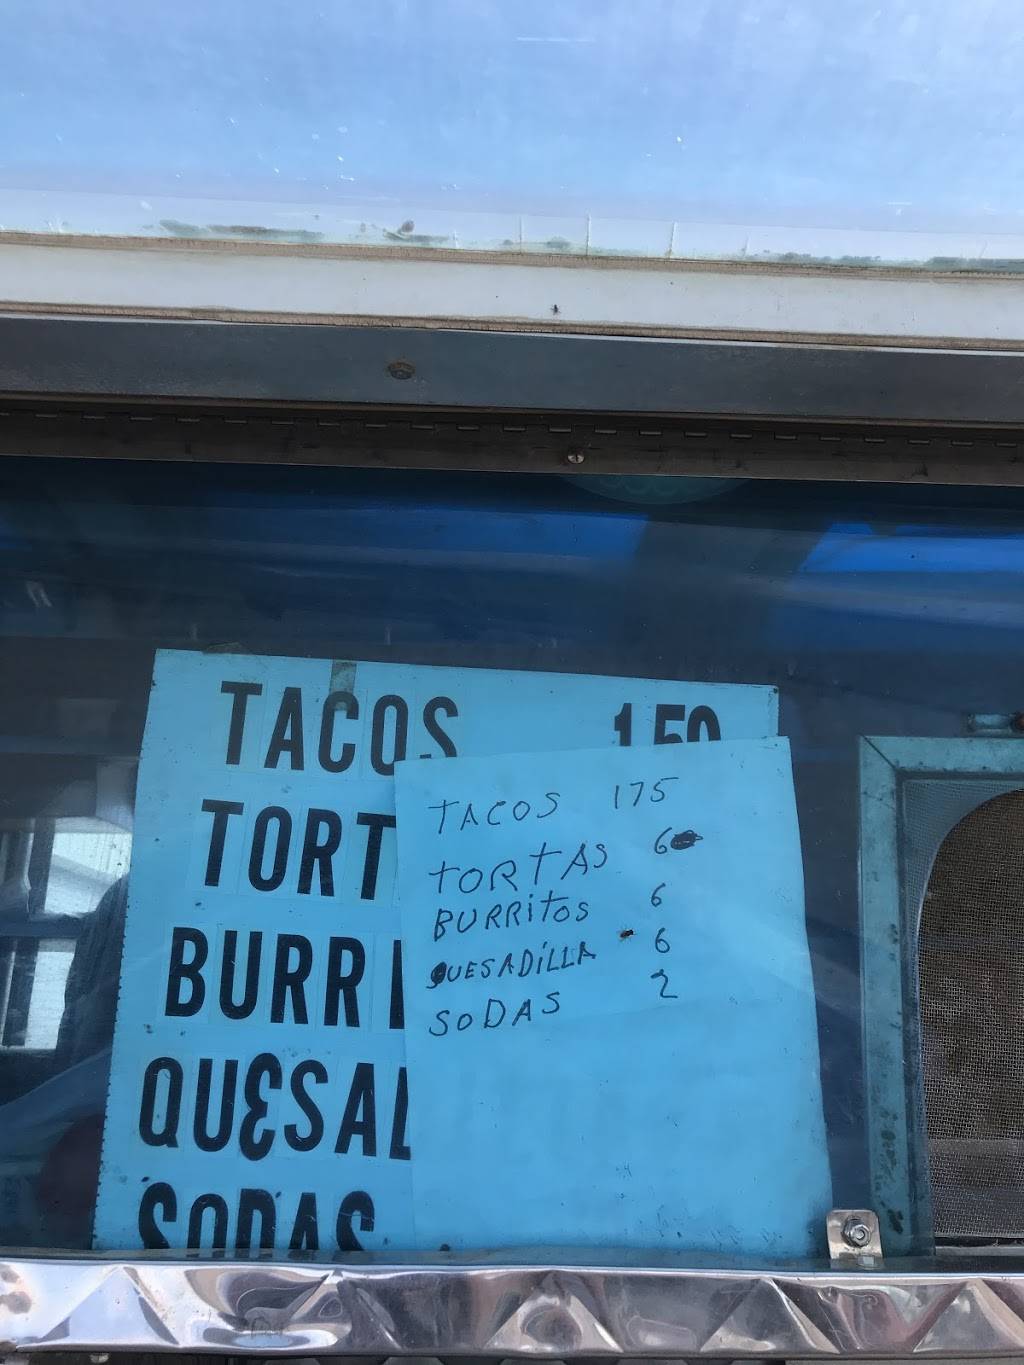 TACOS 150
TORT
BURRI
QUESAD
SODAS
TACOS 175
TORTAS 6
BURRiTOS 6
QUESADiLLA 6
SODAS 2